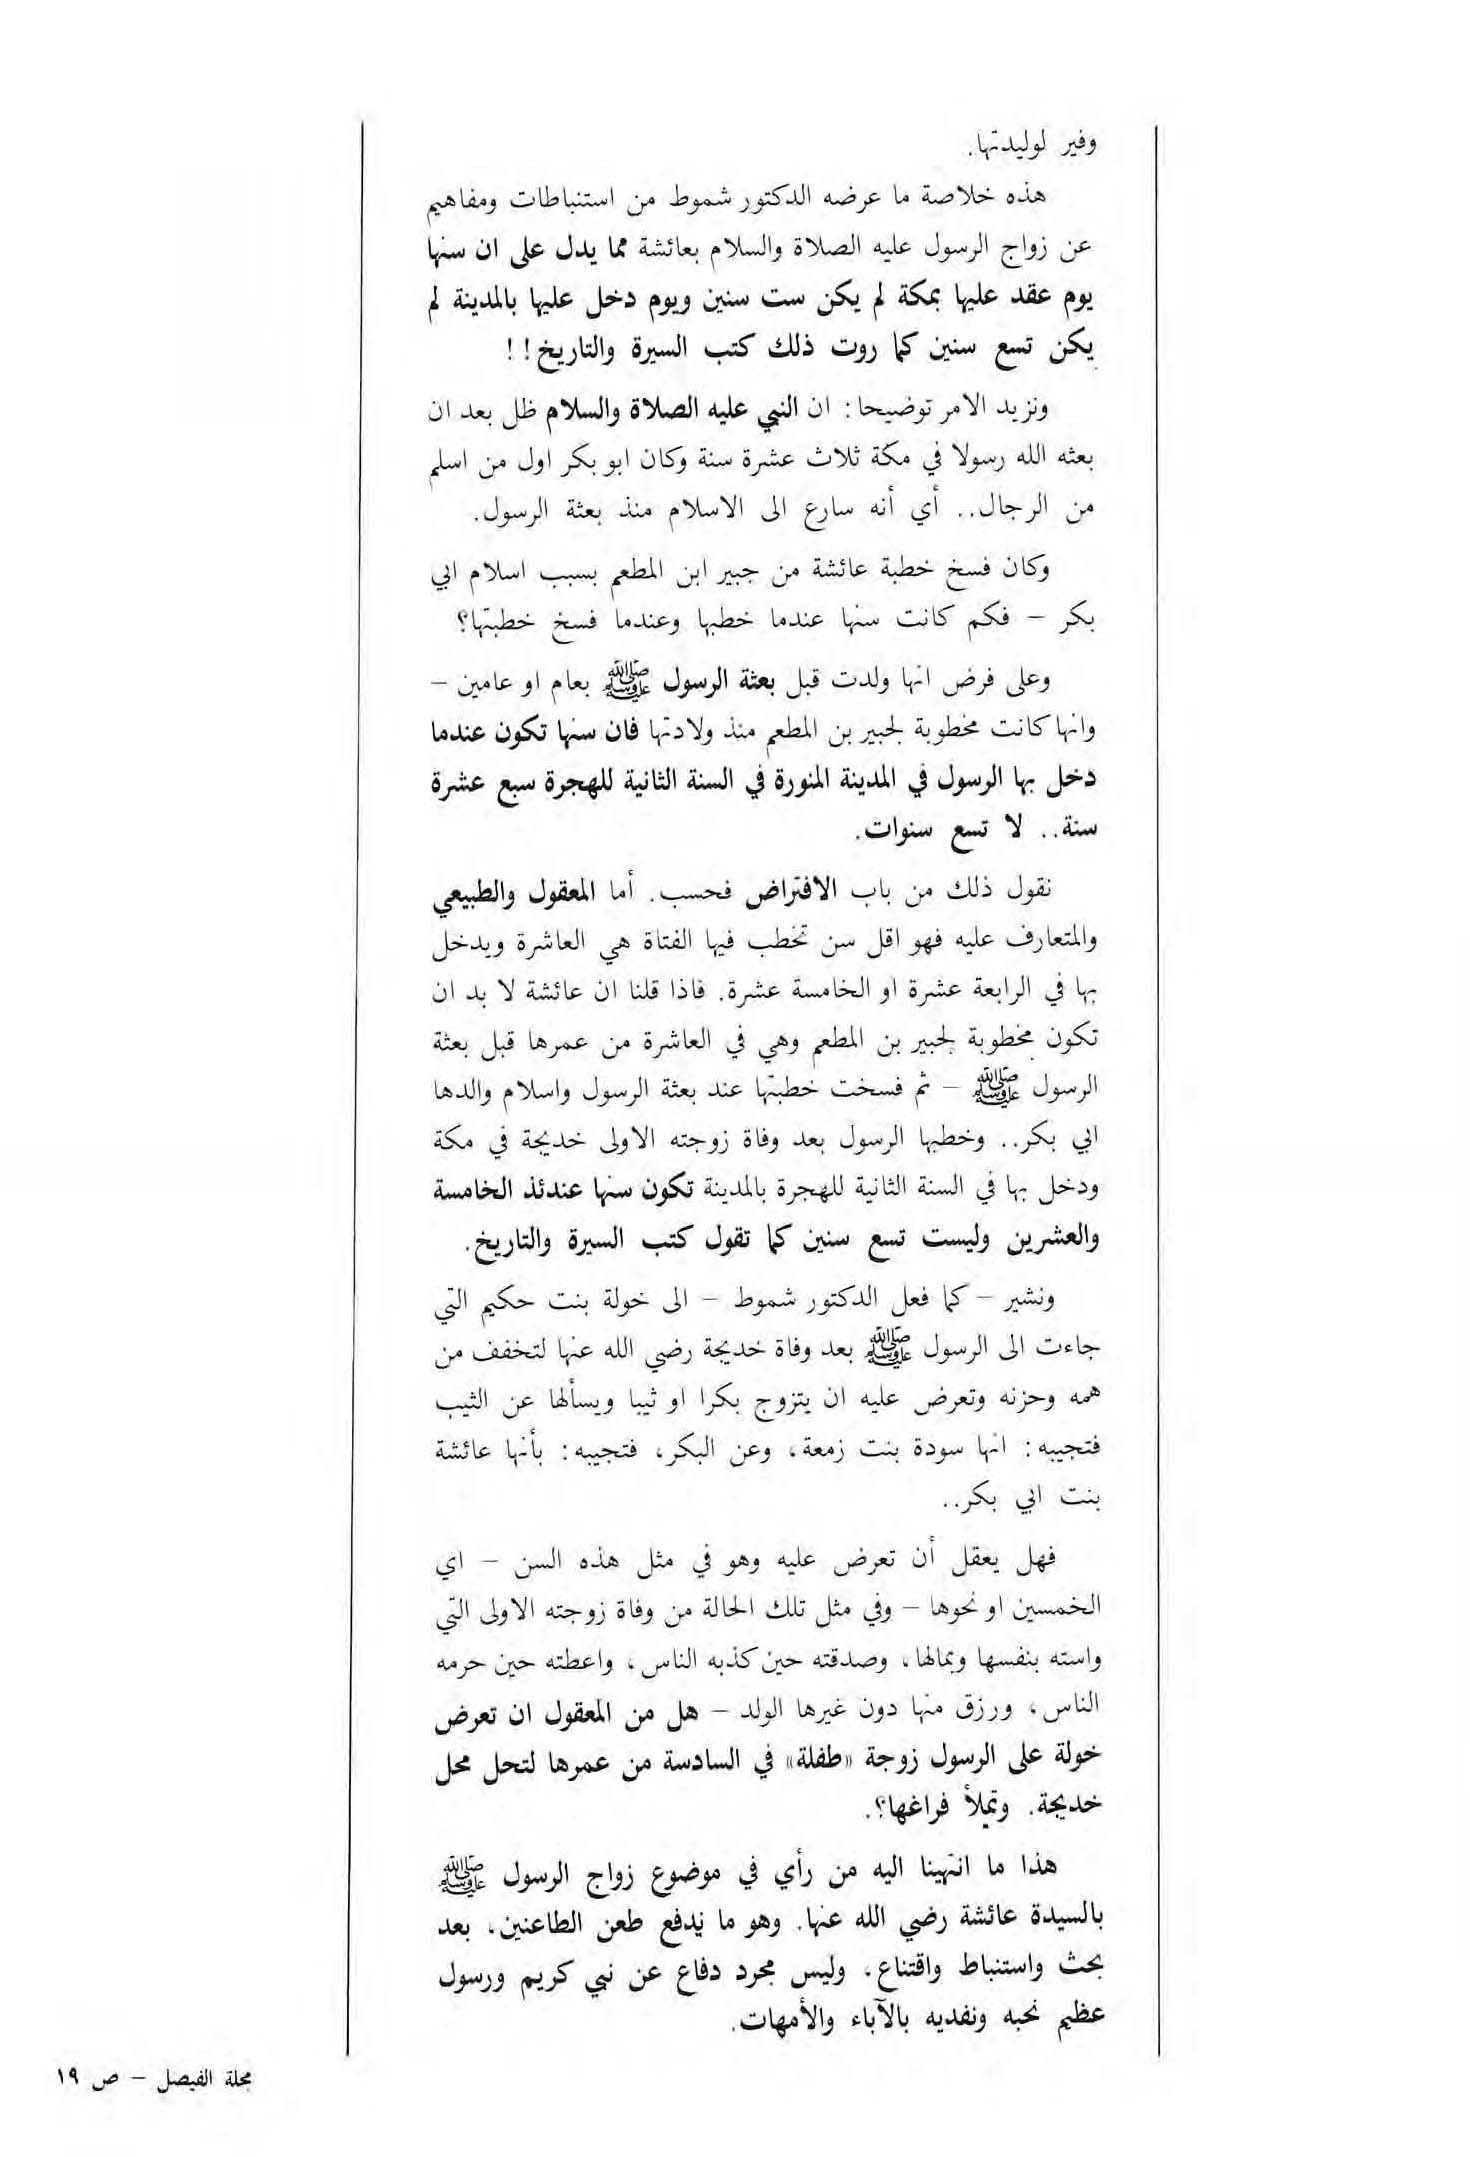 وفير لوليدتها.
هذه خلاصة ما عرضه الدكتور شموط من استنباطات ومفاهيم
عن زواج الرسول عليه الصلاة والسلام بعائشة مما يدل على ان سنها
يوم عقد عليها بمكة لم يكن ست سنين ويوم دخل عليها بالمدينة لم
يكن تسع سنين كما روت ذلك كتب السيرة والتاريخ!!
ونزيد الامر توضيحا: ان النبي عليه الصلاة والسلام ظل بعد ان
بعثه الله رسولا في مكة ثلاث عشرة سنة وكان ابو بكر اول من اسلم
من الرجال.. أي أنه سارع الى الاسلام منذ بعثة الرسول.
وكان فسخ خطبة عائشة من جبير ابن المطعم بسبب اسلام ابي
بكر – فكم كانت سنها عندما خطبها وعندما فسخ خطبتها؟
وعلى فرض انها ولدت قبل بعثة الرسول ﷺ بعام او عامين –
وانها كانت مخطوبة لجبير بن المطعم منذ ولادتها فان سنها تكون عندما
دخل بها الرسول في المدينة المنورة في السنة الثانية للهجرة سبع عشرة
سنة.. لا تسع سنوات.
نقول ذلك من باب الافتراض فحسب. أما المعقول والطبيعي
والمتعارف عليه فهو اقل سن تخطب فيها الفتاة هي العاشرة ويدخل
بها في الرابعة عشرة او الخامسة عشرة. فاذا قلنا ان عائشة لا بد ان
تكون مخطوبة لجبير بن المطعم وهي في العاشرة من عمرها قبل بعثة
الرسول ﷺ – ثم فسخت خطبتها عند بعثة الرسول واسلام والدها
ابي بكر.. وخطبها الرسول بعد وفاة زوجته الاولى خديجة في مكة
ودخل بها في السنة الثانية للهجرة بالمدينة تكون سنها عندئذ الخامسة
والعشرين وليست تسع سنين كما تقول كتب السيرة والتاريخ.
ونشير – كما فعل الدكتور شموط – الى خولة بنت حكيم التي
جاءت الى الرسول ﷺ بعد وفاة خديجة رضي الله عنها لتخفف من
همه وحزنه وتعرض عليه ان يتزوج بكرا او ثيبا ويسألها عن الثيب
فتجيبه: انها سودة بنت زمعة، وعن البكر، فتجيبه: بأنها عائشة
بنت ابي بكر..
فهل يعقل أن تعرض عليه وهو في مثل هذه السن – اي
الخمسين او نحوها – وفي مثل تلك الحالة من وفاة زوجته الاولى التي
واسته بنفسها وبمالها، وصدقته حين كذبه الناس، واعطته حين حرمه
الناس، ورزق منها دون غيرها الولد – هل من المعقول ان تعرض
خولة على الرسول زوجة «طفلة» في السادسة من عمرها لتحل محل
خديجة. وتملأ فراغها؟.
هذا ما انتهينا اليه من رأي في موضوع زواج الرسول ﷺ
بالسيدة عائشة رضي الله عنها. وهو ما ندفع طعن الطاعنين، بعد
بحث واستنباط واقتناع، وليس مجرد دفاع عن نبي كريم ورسول
عظيم نحبه ونفديه بالآباء والأمهات.
مجلة الفيصل – ص ١٩